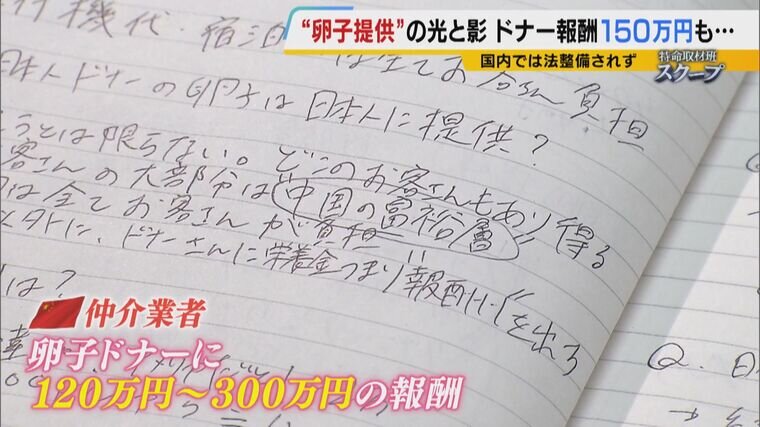 “卵子提供”の光と影 ドナー報酬150万円も…
国内では法整備されず
特命取材班
スクープ
機代・宿泊
は全てお客さん負担
日本人ドナーの卵子は日本人に提供?
うとは限らない。どこのお客さんもあり得る
客さんの大部分は"中国の富裕層"
は全てお客さんが負担
以外に、ドナーさんに つまり"報酬"を
は?
Q. 日
仲介業者
卵子ドナーに
120万円~300万円の報酬